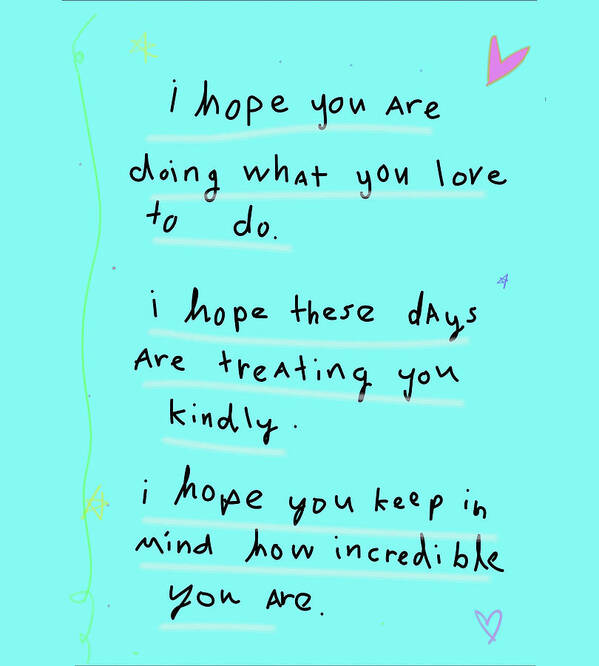 i hope you are
doing what you love
to do.
i hope these days
are treating you
kindly.
i hope you keep in
mind how incredible
you are.